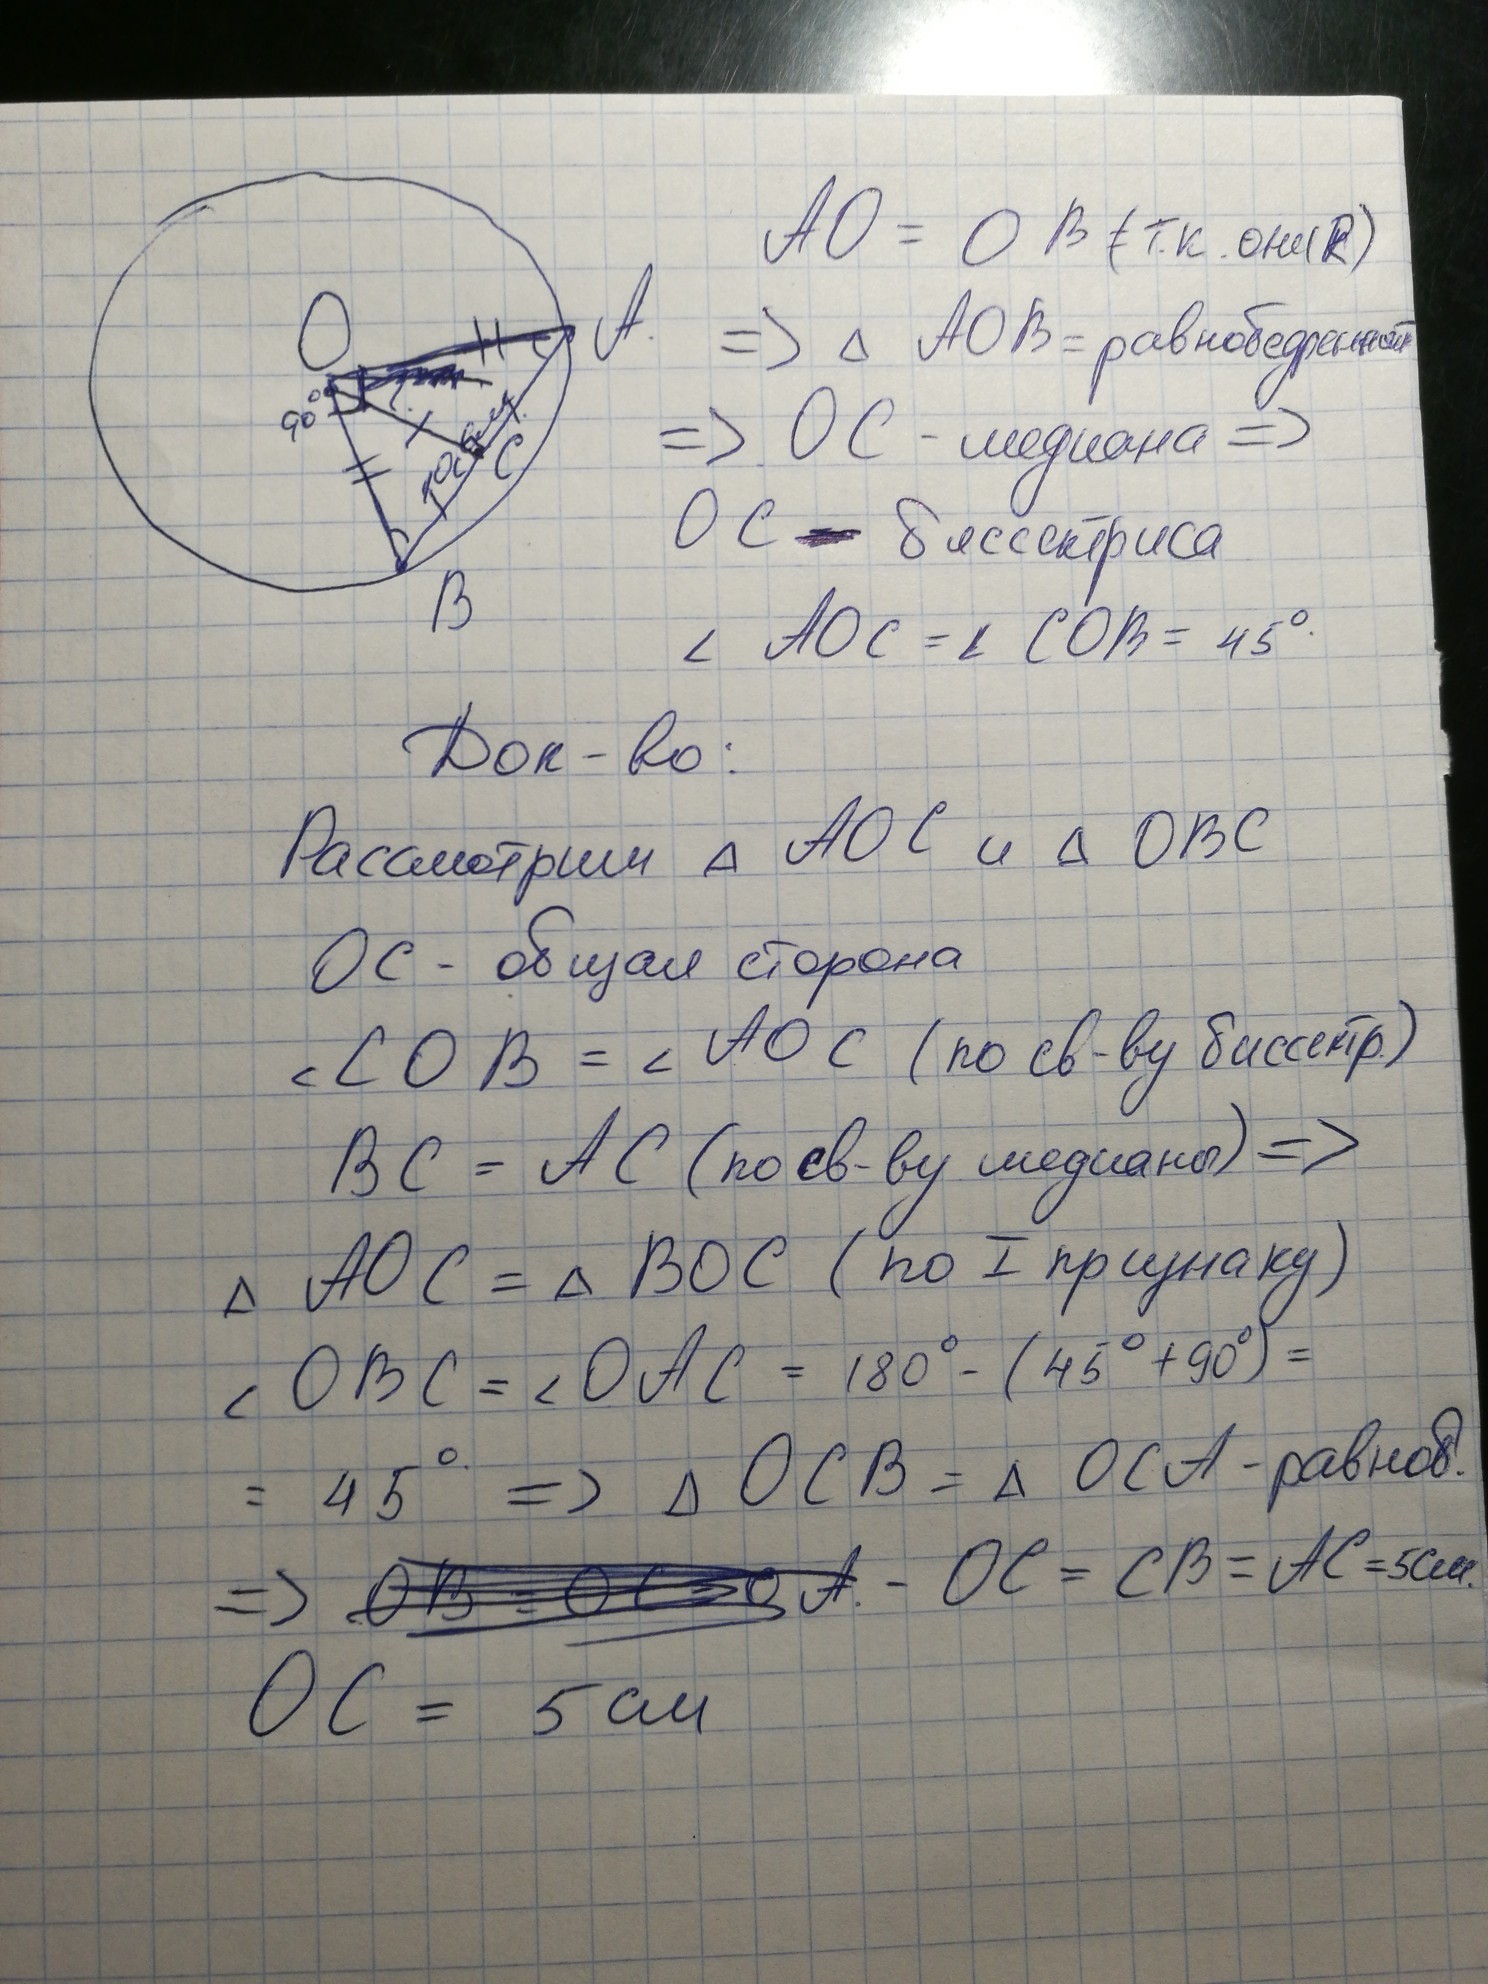 O
A.
90°
10 см.
C
B
AO = OB (т.к. они R)
=> △ AOB = равнобедренный
=> OC - медиана =>
OC - биссектриса
∠ AOC = ∠ COB = 45°.
Док-во:
Рассмотрим △ AOC и △ OBC
OC - общая сторона
∠COB = ∠AOC (по св-ву биссектр.)
BC = AC (по св-ву медианы) =>
△ AOC = △ BOC (по I признаку)
∠ OBC = ∠OAC = 180° - (45° + 90°) =
= 45°. => △ OCB = △ OCA - равноб.
=> OB = OC = OA. - OC = CB = AC = 5см.
OC = 5 см